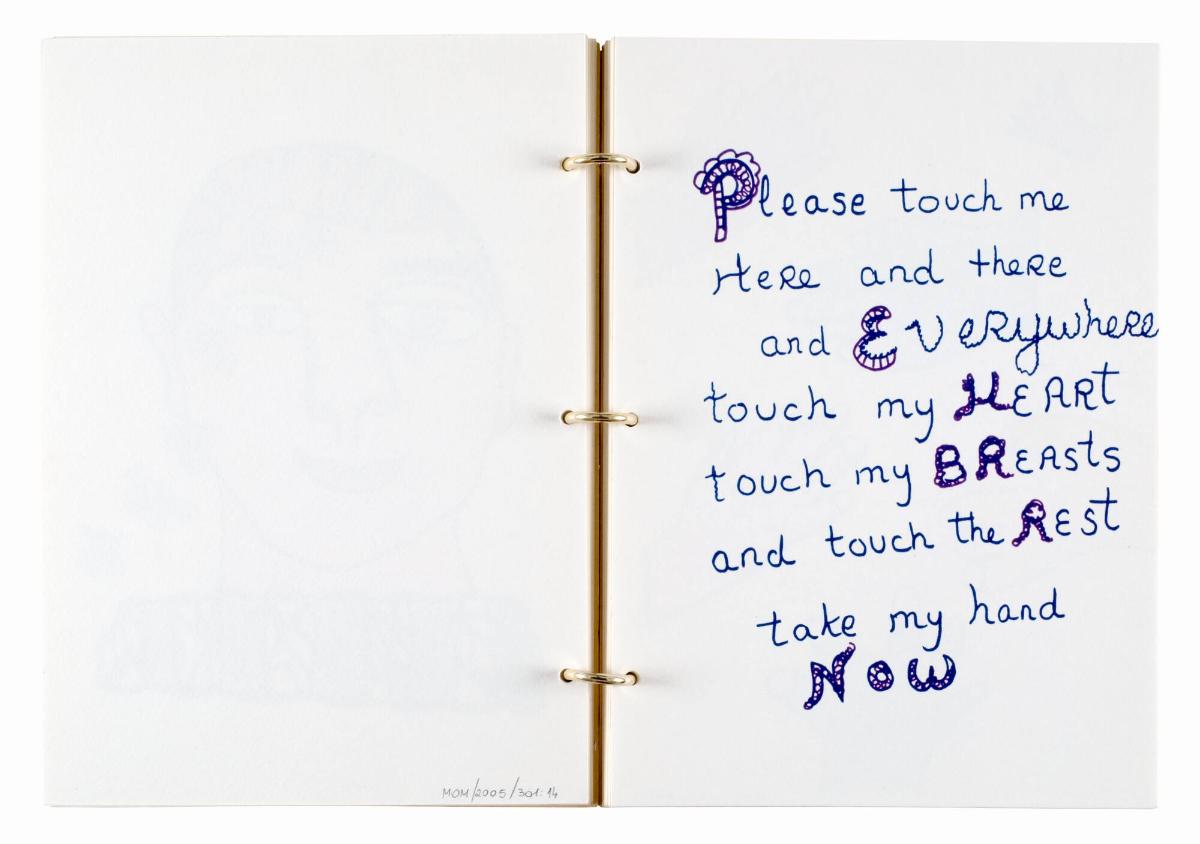 MOM/2005/301:14
Please touch me
Here and there
and EVeRywheRe
touch my HEARt
touch my BREAsts
and touch the REst
take my hand
NoW